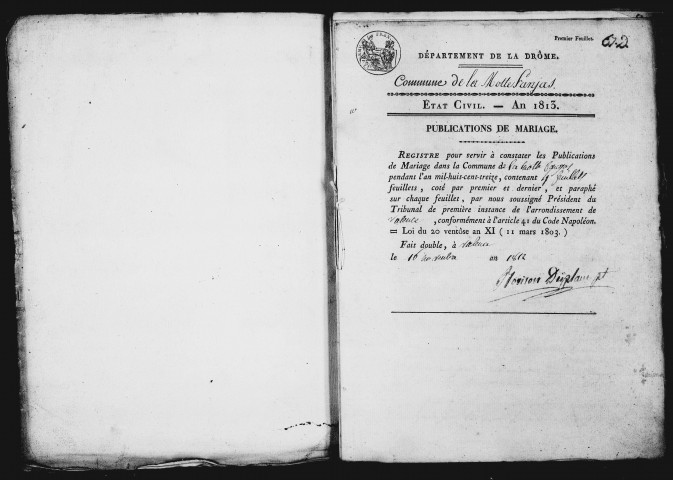 Premier Feuillet.
DÉPARTEMENT DE LA DRÔME.
Commune de la Motte Fanjas.
ÉTAT CIVIL. — AN 1813.
PUBLICATIONS DE MARIAGE.
REGISTRE pour servir à constater les Publications
de Mariage dans la Commune de la Motte Fanjas
pendant l'an mil-huit-cent-treize, contenant
feuillets, coté par premier et dernier, et paraphé
sur chaque feuillet, par nous soussigné Président du
Tribunal de première instance de l'arrondissement de
valence, conformément à l'article 41 du Code Napoléon.
= Loi du 20 ventôse an XI ( 11 mars 1803. )
Fait double, à valence
le 16 novembre an 1812